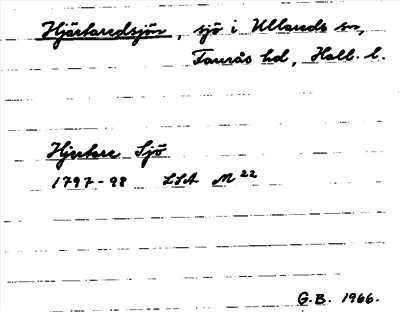 Hjärtaredsjön, sjö i Ullareds sn,
Faurås hd, Hall. l.
Hjertare Sjö
1797-98 LSA M 22
G.B. 1966.